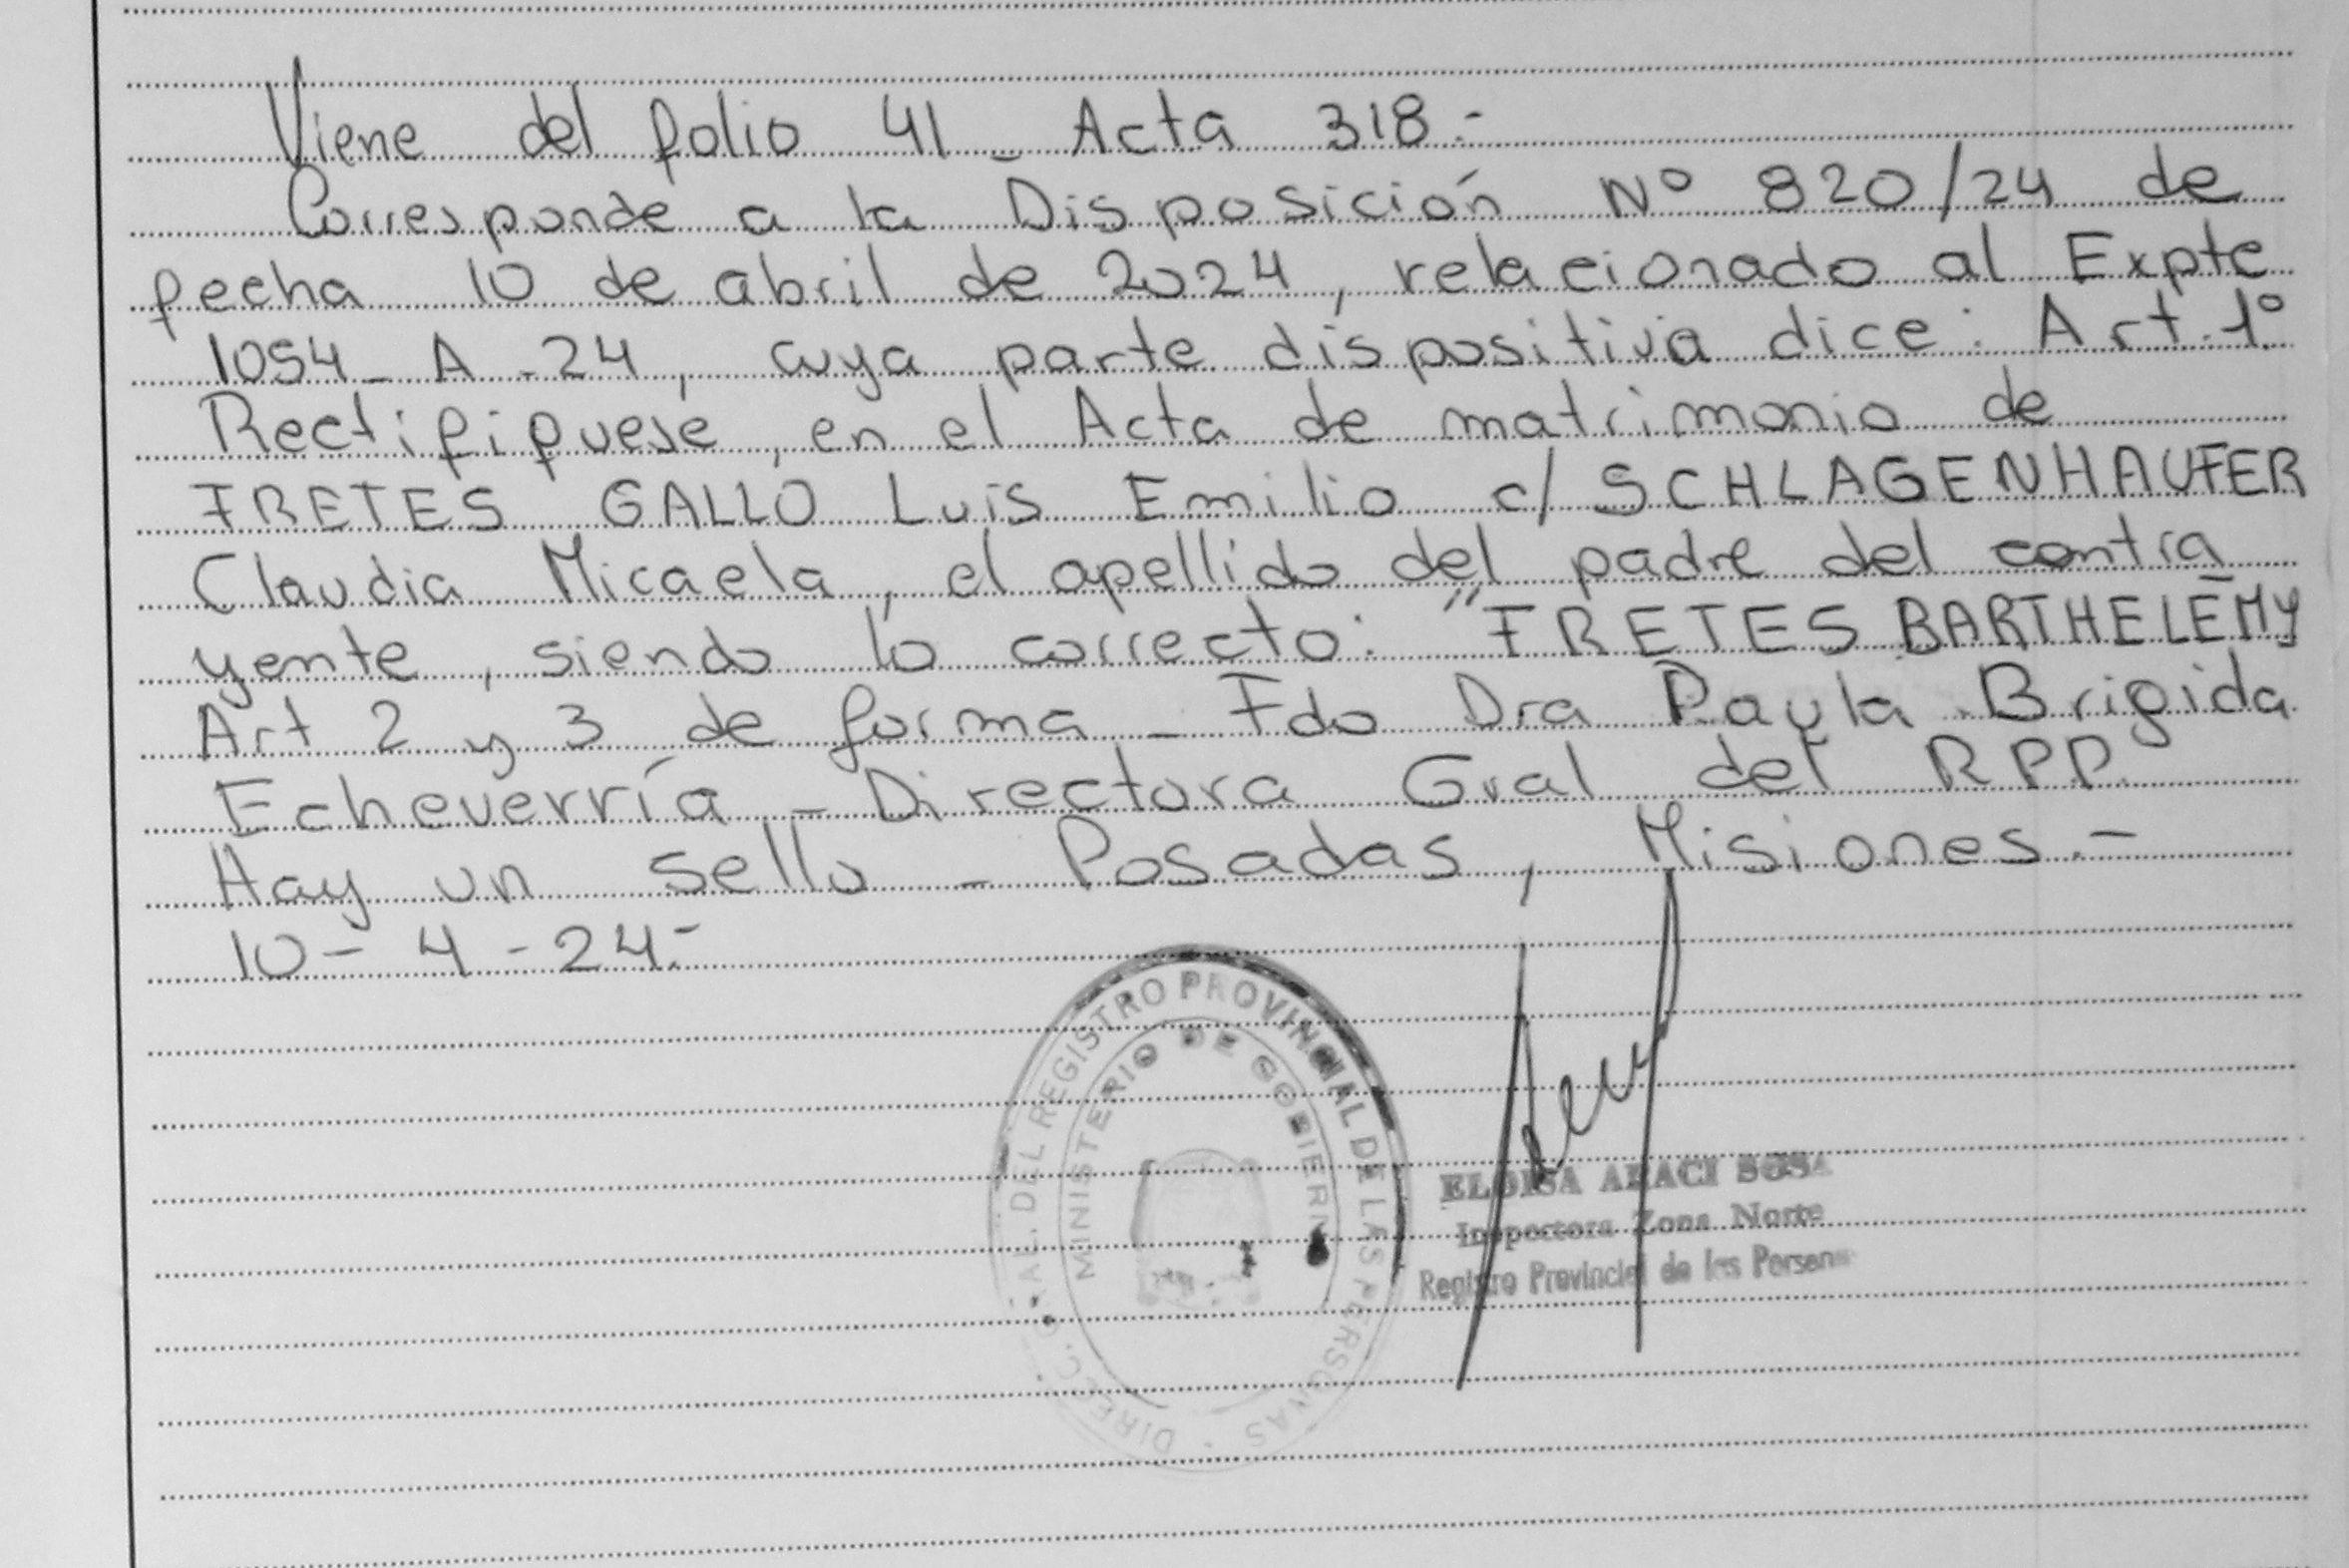 Viene del folio 41 - Acta 318.-
Corresponde a la Disposición Nº 820/24 de
fecha 10 de abril de 2024, relacionado al Expte
1054 - A - 24, cuya parte dispositiva dice: Art. 1º
Rectifiquese, en el Acta de matrimonio de
FRETES GALLO Luis Emilio c/ SCHLAGENHAUFER
Claudia Micaela, el apellido del padre del contra
yente, siendo lo correcto: "FRETES BARTHELEMY
Art 2 y 3 de forma - Fdo Dra Paula Brigida
Echeverría - Directora Gral del RPP
Hay un sello - Posadas, Misiones.-
10 - 4 - 24.-
DIREC. GRAL. DEL REGISTRO PROVINCIAL DE LAS PERSONAS
MINISTERIO DE GOBIERNO
ELOISA ARACI SOSA
Inspectora Zona Norte
Registro Provincial de las Personas